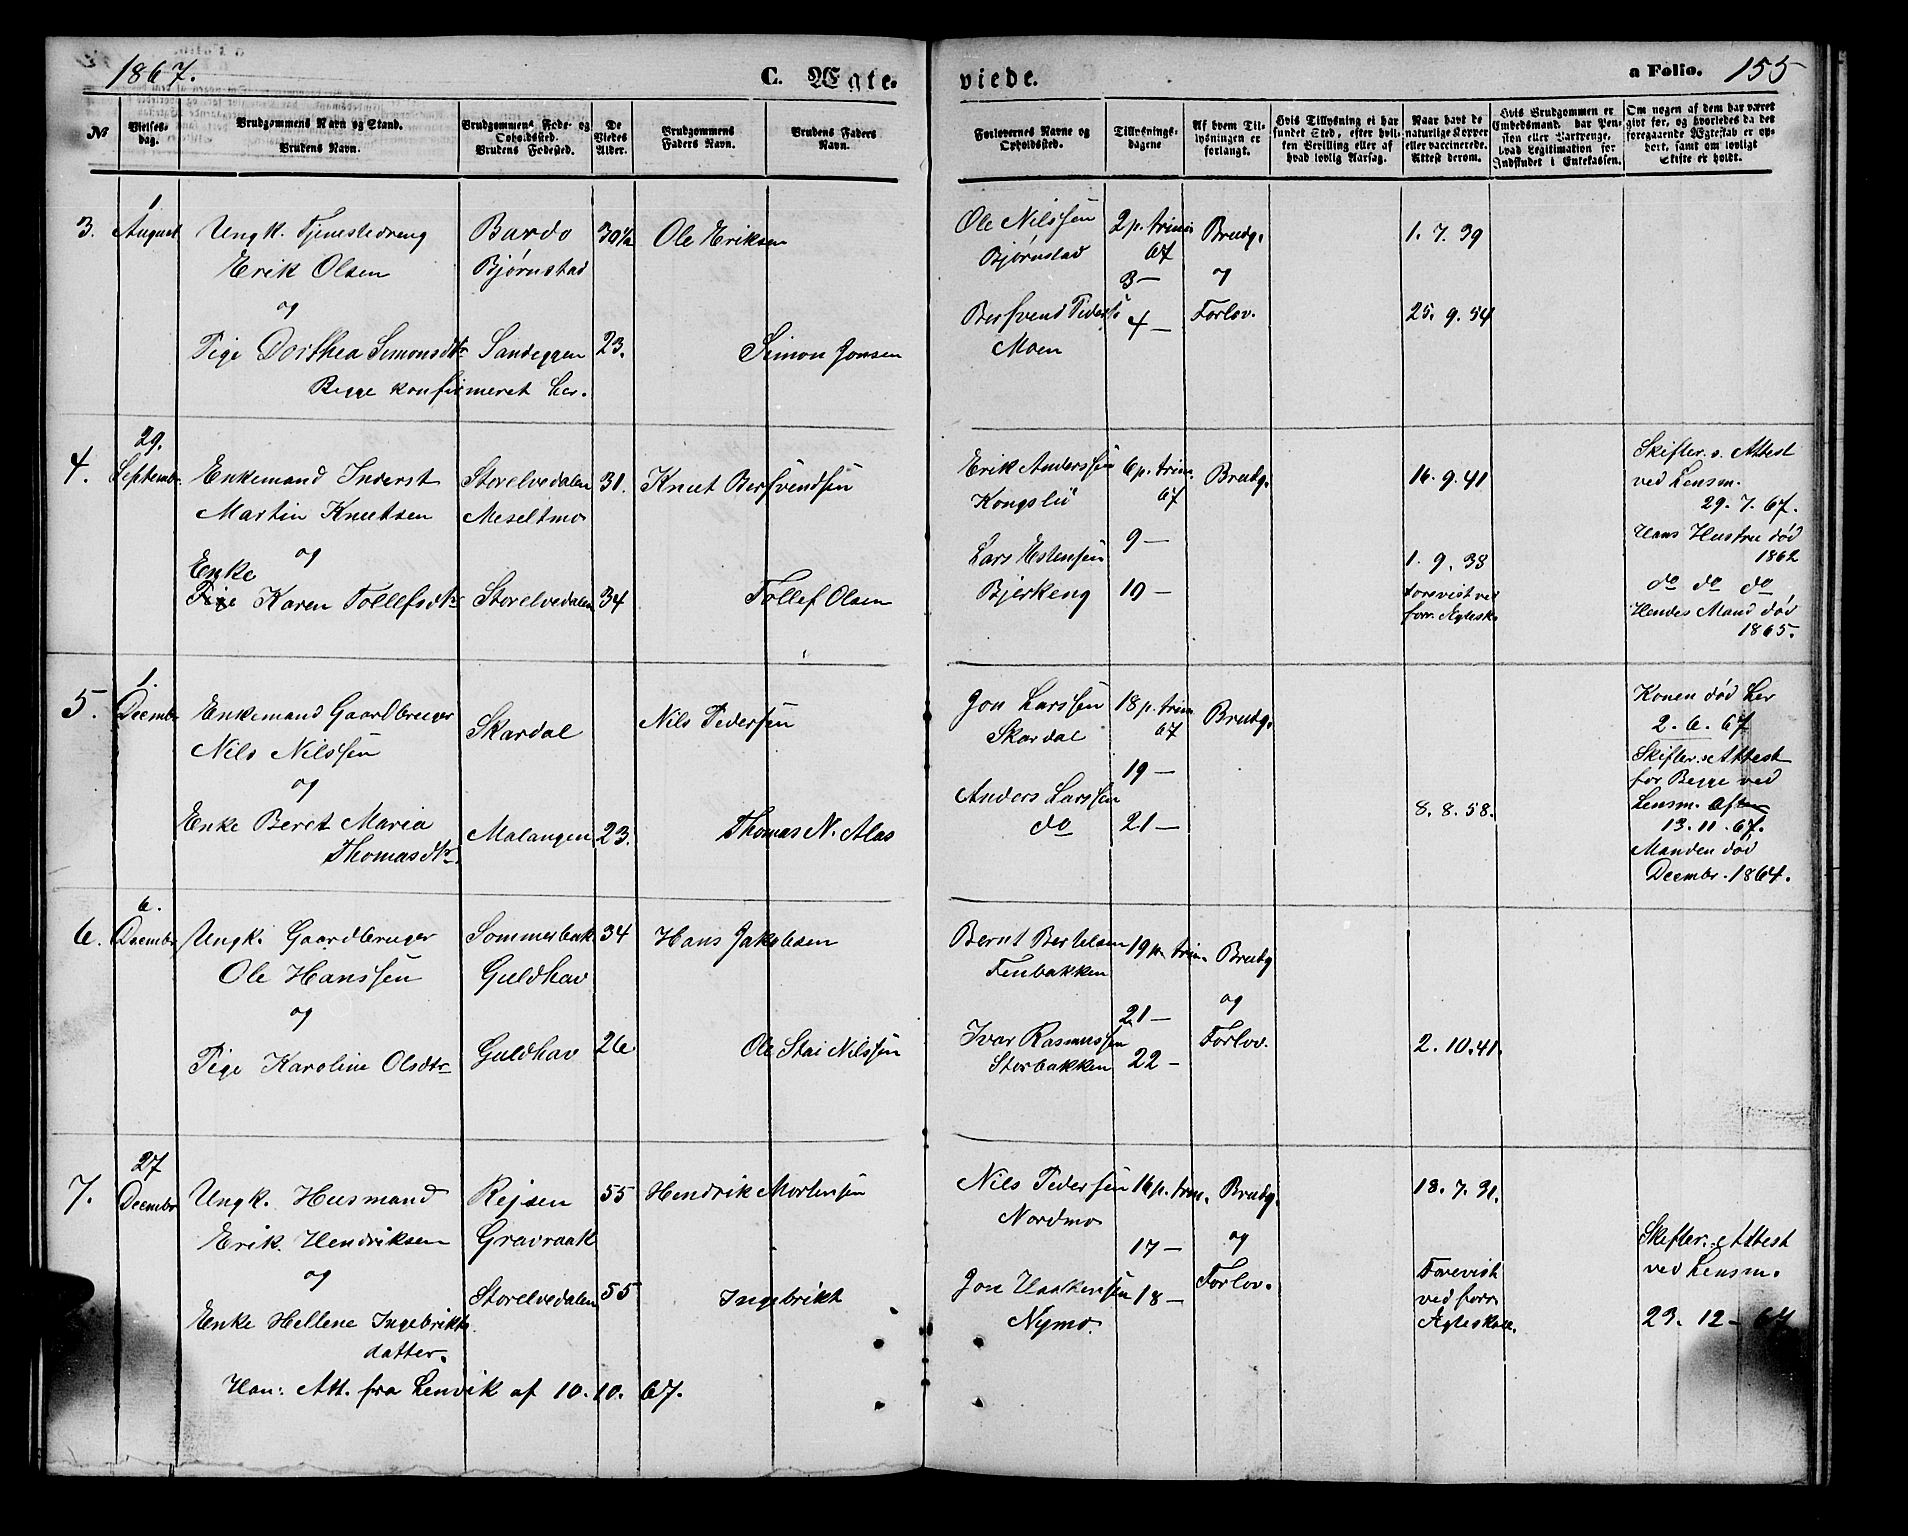 1867.
C. Ægte-
viede.
a Folio. 155
№
Vielses-
dag.
Brudgommens Navn og Stand.
Brudens Navn.
Brudgommens Føde- og
Opholdssted.
Brudens Fødested.
De
Viedes
Alder.
Brudgommens
Faders Navn.
Brudens Faders
Navn.
Forlovernes Navne og
Opholdssted.
Tillysnings-
dagene
Af hvem Til-
lysningen er
forlangt.
Hvis Tillysning ei har
fundet Sted, efter hvil-
ken Bevilling eller af
hvad lovlig Aarsag.
Naar havt de
naturlige Kopper
eller vaccinerede.
Attest derom.
Hvis Brudgommen er
Embedsmand, har Pen-
sion eller Vartpenge,
hvad Legitimation for
Indskudet i Enkekassen.
Om nogen af dem har været
givt før, og hvorledes da det
foregaaende Ægteskab er op-
hørt, samt om lovligt
Skifte er holdt.
3.
1
August
Ungk. Tjenestedreng
Erik Olsen
og
Pige Dorthea Simonsdtr
Begge konfirmeret her.
Bardo
Bjørnstad
Sandeggen
30½
23.
Ole Eriksen
Simon Jonsen
Ole Nilssen
Bjørnstad
Bersvend Peders:
Moen
2 p. trinis
67
3 —
4 —
Brudg.
og
Forlov.
1. 7. 39
25. 9. 54
4.
29.
Septembr.
Enkemand Inderst
Martin Knutsen
og
Enke
Pige Karen Tollefsdtr
Storelvedalen
Meseltmo
Storelvedalen
31.
34
Knut Bersvendsen
Tollef Olsen
Erik Anderssen
Kongsli
Lars Estensen
Bjerkeng
6 p. trin.
67
9 —
10 —
Brudg.
16. 9. 41
1. 9. 38
forevist ved
forr. Ægtesk.
Skifter. s. Attest
ved Lensm.
29. 7. 67.
Hans Hustru død
1862
do do do
Hendes Mand død
1865.
5.
1.
Decembr
Enkemand Gaardbruger
Nils Nilssen
og
Enke Beret Maria
Thomasdtr.
Skardal
Malangen
23.
Nils Pedersen
Thomas N. Alas
Jon Larssen
Skardal
Anders Larssen
do
18 p. trin.
67
19 —
21 —
Brudg.
8. 8. 58.
Konen død her
2. 6. 67
Skifter. s. Attest
for Begge ved
Lensm.
13. 11. 67.
Manden død
Decembr. 1864.
6.
6.
Decembr
Ungk. Gaardbruger
Ole Hanssen
og
Pige Karoline Olsdtr
Sommerbak
Guldhav
Guldhav
34
26
Hans Jakobsen
Ole Stai Nilssen
Bernt Bertelsen
Fenbakken
Ivar Rasmussen
Storbakken
19 p. trin.
21 —
22 —
Brudg
og
Forlov.
2. 10. 41.
7.
27
Decembr
Ungk. Husmand
Erik Hendriksen
og
Enke Hellene Ingebrikts
datter.
Han: Att. fra Lenvik af 10. 10. 67.
Rejsen
Gravraak
Storelvedalen
55
55
Hendrik Mortensen
Ingebrikt
Nils Pedersen
Nordmo
Jon Haakensen
Nymo.
16 p. trin.
17 —
18 —
Brudg.
og
Forlov.
18. 7. 31.
Forevist
ved forr.
Ægteskab.
Skifter. s. Attest
ved Lensm.
23. 12 - 67